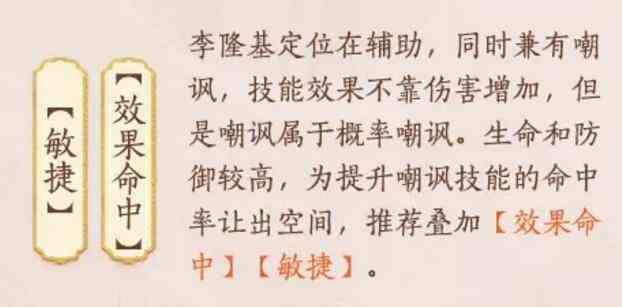 【敏捷】
【效果命中】
李隆基定位在辅助，同时兼有嘲
讽，技能效果不靠伤害增加，但
是嘲讽属于概率嘲讽。生命和防
御较高，为提升嘲讽技能的命中
率让出空间，推荐叠加【效果命
中】【敏捷】。